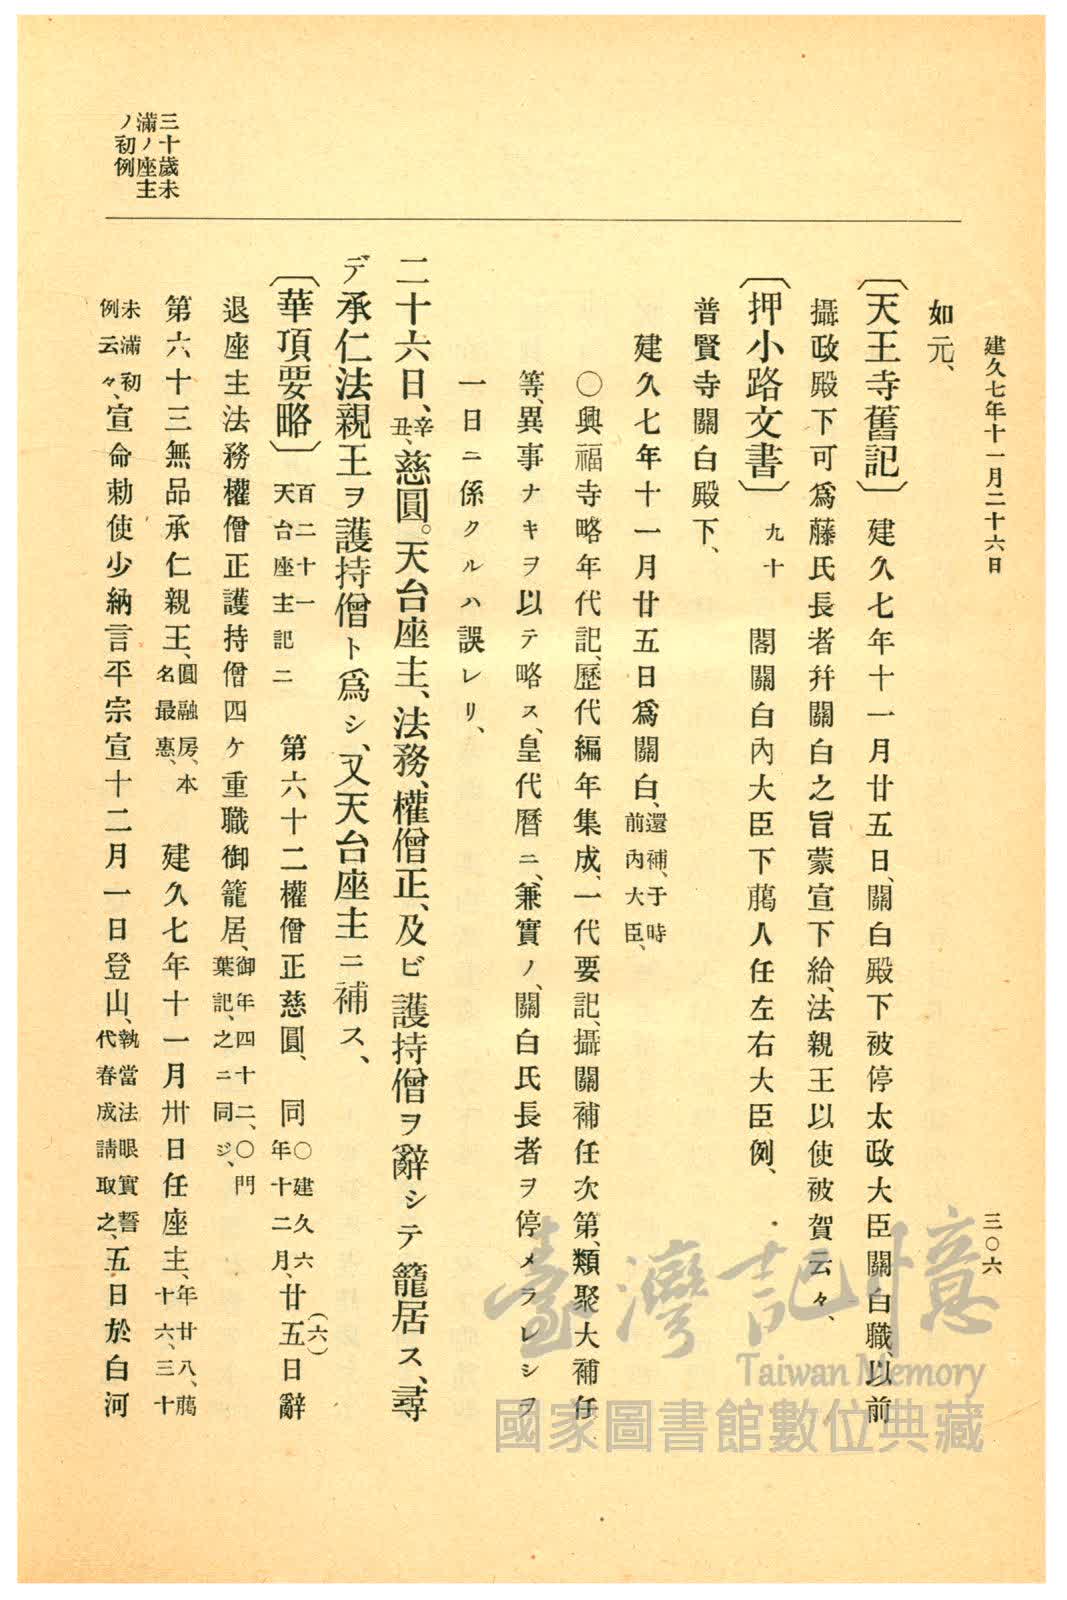 建久七年十一月二十六日
三〇六
如元、
〔天王寺舊記〕建久七年十一月廿五日、關白殿下被停太政大臣關白職、以前
攝政殿下可爲藤氏長者幷關白之旨蒙宣下給、法親王以使被賀云々、
〔押小路文書〕九十 閣關白內大臣下﨟人任左右大臣例、
普賢寺關白殿下、
建久七年十一月廿五日爲關白、還補、于時
前內大臣、
〇興福寺略年代記、歷代編年集成、一代要記、攝關補任次第、類聚大補任
等、異事ナキヲ以テ略ス、皇代曆ニ、兼實ノ、關白氏長者ヲ停メラレシヲ
一日ニ係クルハ誤レリ、
二十六日、辛
丑、慈圓。天台座主、法務、權僧正、及ビ護持僧ヲ辭シテ籠居ス、尋
デ承仁法親王ヲ護持僧ト爲シ、又天台座主ニ補ス、
〔華頂要略〕百二十一
天台座主記二 第六十二權僧正慈圓、同〇建久六(六)
年十二月、廿五日辭
退座主法務權僧正護持僧四ケ重職御籠居、御年四十二、〇門
葉記、之ニ同ジ、
第六十三無品承仁親王、圓融房、本
名最惠、 建久七年十一月卅日任座主、年廿八、﨟
十六、三十
未滿初
例云々、宣命勅使少納言平宗宣十二月一日登山、執當法眼實誓
代春成請取之、五日於白河
三十歲未
滿ノ座主
ノ初例
臺灣記憶
Taiwan Memory
國家圖書館數位典藏